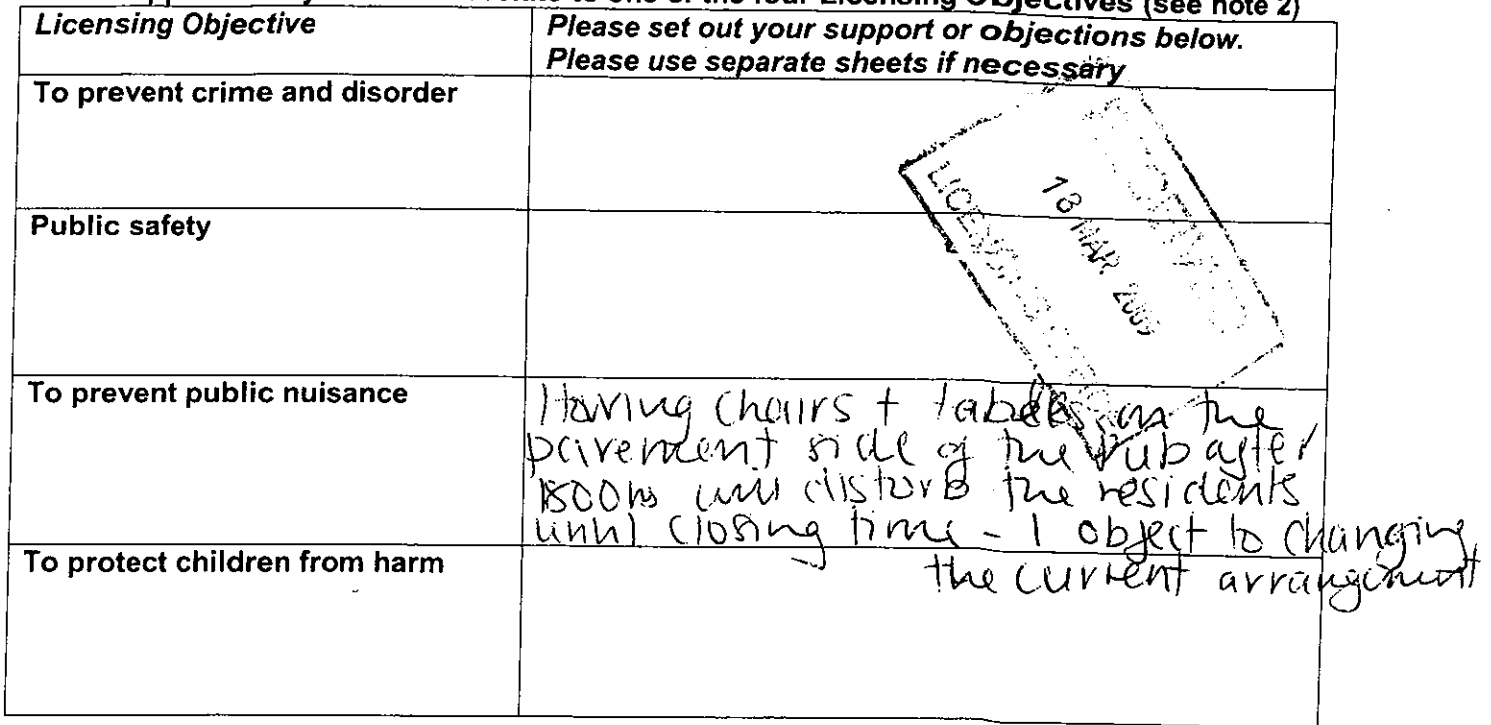 one of the four Licensing Objectives (see note 2)
Licensing Objective
Please set out your support or objections below.
Please use separate sheets if necessary
To prevent crime and disorder
Public safety
LICENSING
18 MAR 200
To prevent public nuisance
Having Chairs + tables on the
pavement side of the Pub after
1800hs will disturb the residents
until closing time - I object to changing
the current arrangement
To protect children from harm